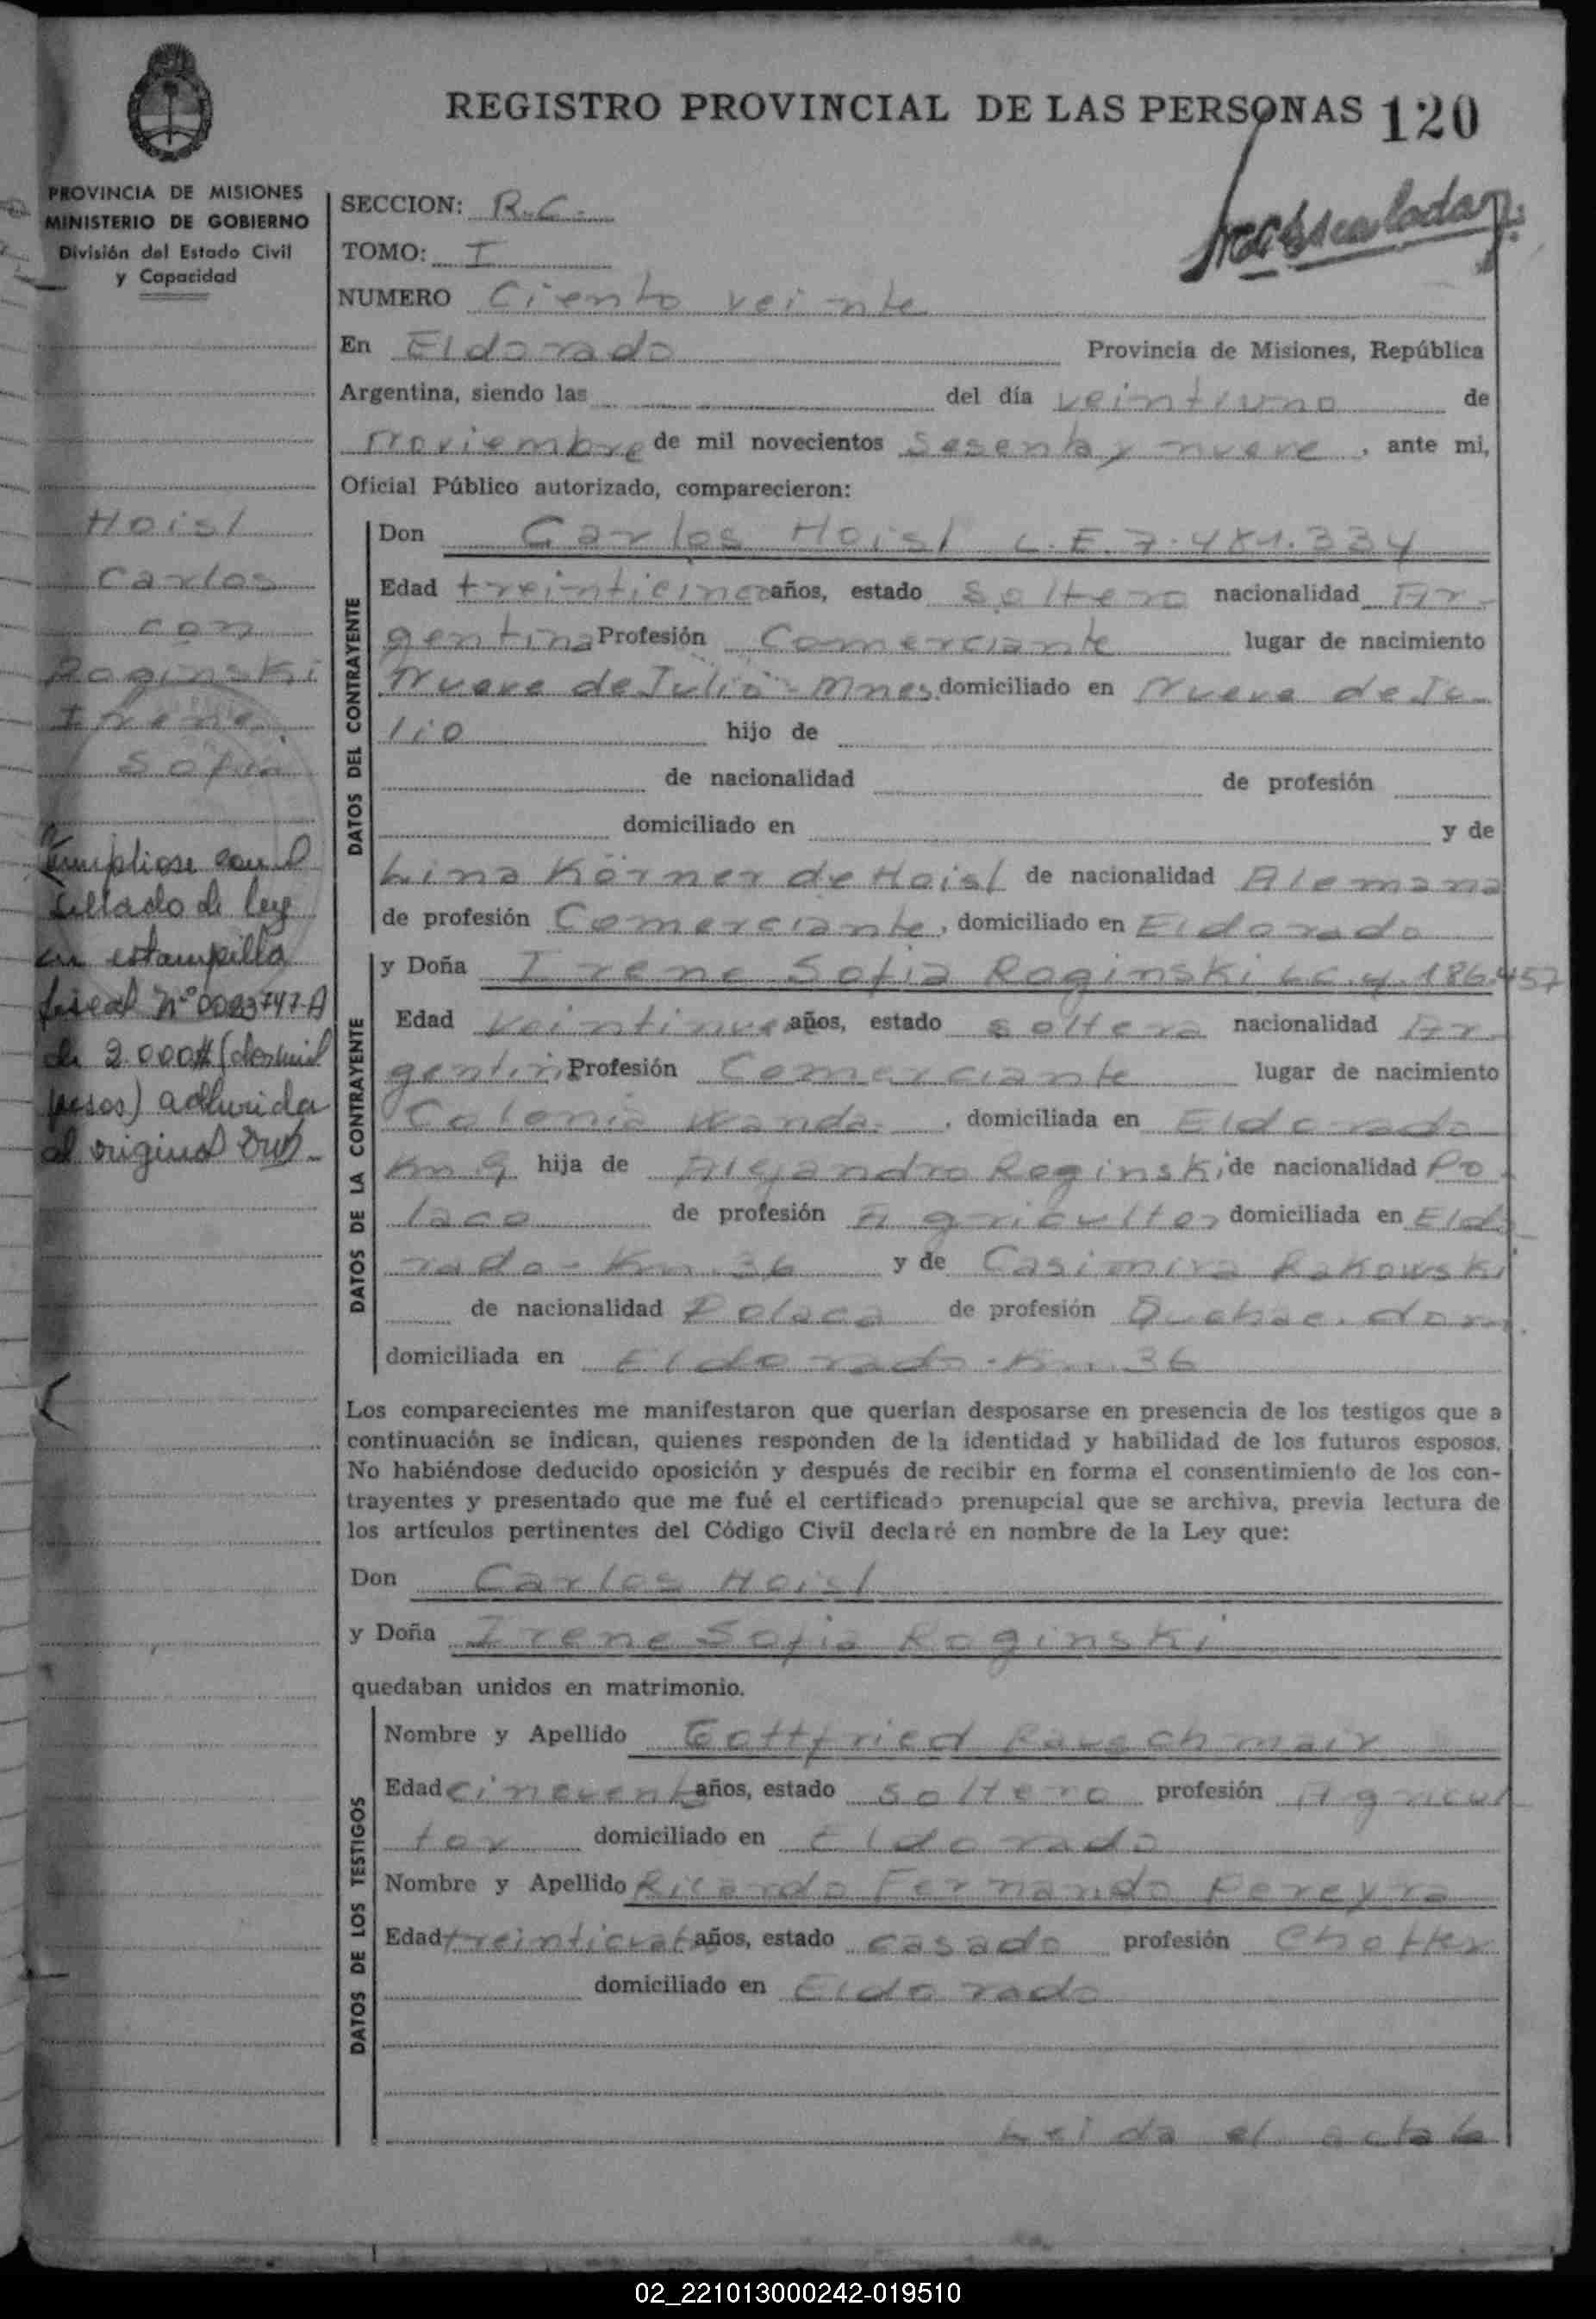 REGISTRO PROVINCIAL DE LAS PERSONAS 120
PROVINCIA DE MISIONES
MINISTERIO DE GOBIERNO
División del Estado Civil
y Capacidad
Hoisl
Carlos
con
Roginski
Irene
Sofia
Cumpliose con el
sellado de ley
en estampilla
fiscal Nº 0023747-A
de 2.000 (dos mil
pesos) adherida
al original
SECCION: R.C.
TOMO: I
NUMERO Ciento veinte
En Eldorado Provincia de Misiones, República
Argentina, siendo las del día veintiuno de
noviembre de mil novecientos Sesenta y nueve, ante mi,
Oficial Público autorizado, comparecieron:
DATOS DEL CONTRAYENTE
Don Carlos Hoisl L.E. 7.481.334
Edad treinticinco años, estado Soltero nacionalidad Ar-
gentina Profesión Comerciante lugar de nacimiento
Nueve de Julio - Mnes domiciliado en Nueve de Ju-
lio hijo de
de nacionalidad de profesión
domiciliado en y de
Lina Körner de Hoisl de nacionalidad Alemana
de profesión Comerciante, domiciliado en Eldorado
DATOS DE LA CONTRAYENTE
y Doña Irene Sofia Roginski L.C. 4.186.457
Edad Veintinueve años, estado soltera nacionalidad Ar-
gentina Profesión Comerciante lugar de nacimiento
Colonia Wanda, domiciliada en Eldorado
Km 9 hija de Alejandro Roginski de nacionalidad Po
laco de profesión Agricultor domiciliada en Eldo
rado - Km. 36 y de Casimira Rakowski
de nacionalidad Polaca de profesión Quehac. dom.
domiciliada en Eldorado - Km. 36
Los comparecientes me manifestaron que querían desposarse en presencia de los testigos que a
continuación se indican, quienes responden de la identidad y habilidad de los futuros esposos.
No habiéndose deducido oposición y después de recibir en forma el consentimiento de los con-
trayentes y presentado que me fué el certificado prenupcial que se archiva, previa lectura de
los artículos pertinentes del Código Civil declaré en nombre de la Ley que:
Don Carlos Hoisl
y Doña Irene Sofia Roginski
quedaban unidos en matrimonio.
DATOS DE LOS TESTIGOS
Nombre y Apellido Gottfried Rauschmair
Edad cincuenta años, estado soltero profesión Agricul
tor domiciliado en Eldorado
Nombre y Apellido Ricardo Fernando Pereyra
Edad treinticuatro años, estado casado profesión Chofer
domiciliado en Eldorado
Leida el acta la
02_221013000242-019510